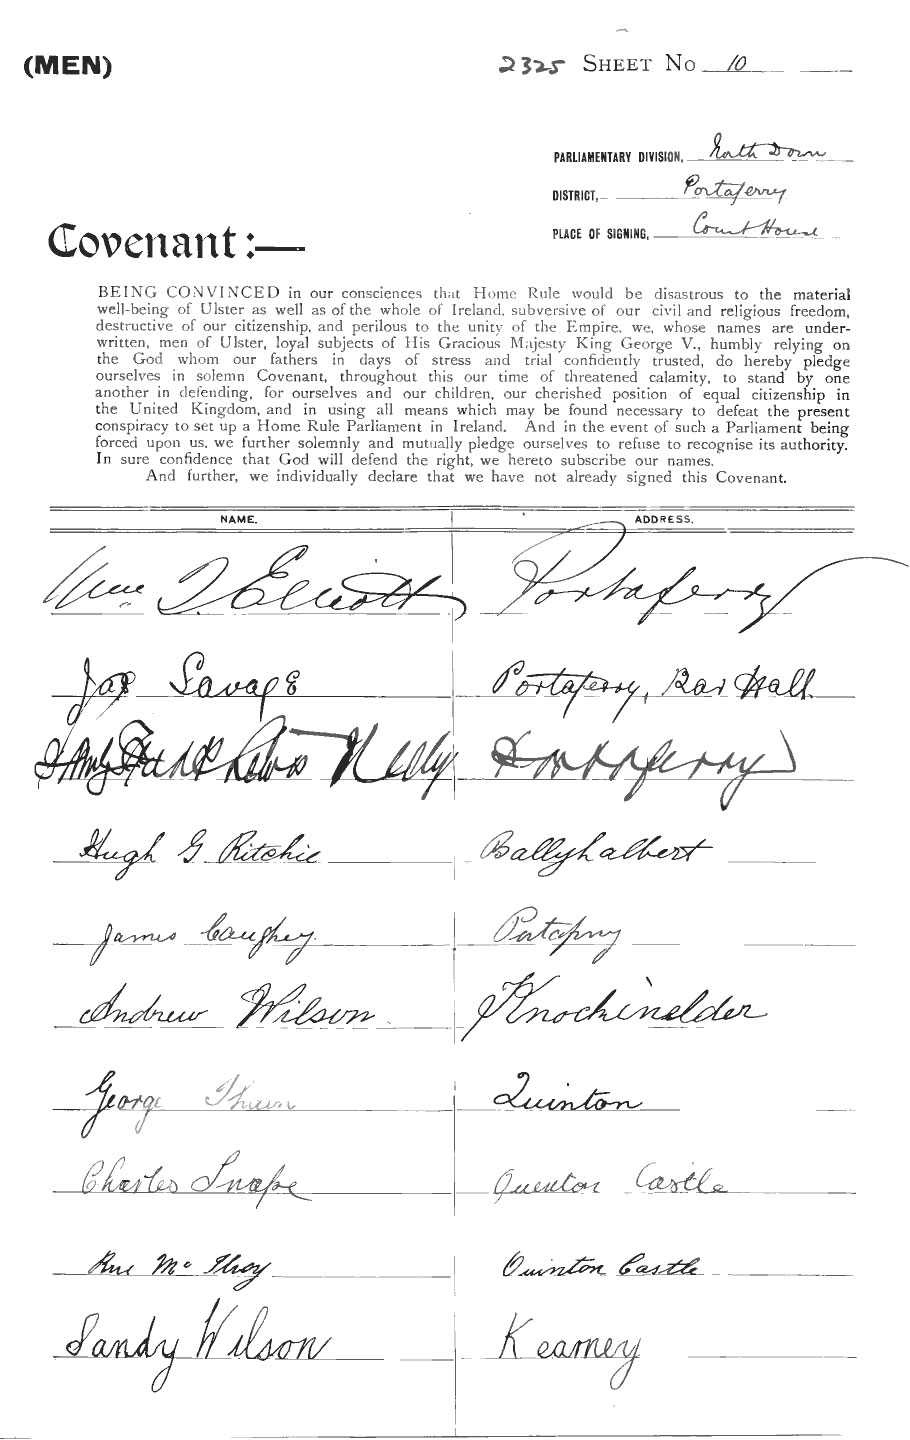 (MEN)
2325 SHEET No 10
PARLIAMENTARY DIVISION, North Down
DISTRICT, Portaferry
PLACE OF SIGNING, Court House
Covenant:—
BEING CONVINCED in our consciences that Home Rule would be disastrous to the material
well-being of Ulster as well as of the whole of Ireland, subversive of our civil and religious freedom,
destructive of our citizenship, and perilous to the unity of the Empire, we, whose names are under-
written, men of Ulster, loyal subjects of His Gracious Majesty King George V., humbly relying on
the God whom our fathers in days of stress and trial confidently trusted, do hereby pledge
ourselves in solemn Covenant, throughout this our time of threatened calamity, to stand by one
another in defending, for ourselves and our children, our cherished position of equal citizenship in
the United Kingdom, and in using all means which may be found necessary to defeat the present
conspiracy to set up a Home Rule Parliament in Ireland. And in the event of such a Parliament being
forced upon us, we further solemnly and mutually pledge ourselves to refuse to recognise its authority.
In sure confidence that God will defend the right, we hereto subscribe our names.
And further, we individually declare that we have not already signed this Covenant.
NAME. ADDRESS.
Wm J. Elliott Portaferry
Jas Savage Portaferry, Bar Hall
Portaferry
Hugh G Ritchie Ballyhalbert
James Caughey Portaferry
Andrew Wilson Knockinelder
George Quinton
Charles Snape Quenton Castle
Mc Ilroy Quinton Castle
Sandy Wilson Kearney